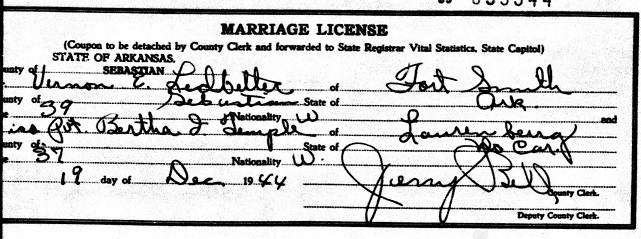 MARRIAGE LICENSE
(Coupon to be detached by County Clerk and forwarded to State Registrar Vital Statistics, State Capitol)
STATE OF ARKANSAS.
SEBASTIAN
Vernon E. Ledbetter of Fort Smith
unty of Sebastian State of Ark.
39 Nationality W and
iss Pvt. Bertha I Temple of Laurenberg
unty of State of No Car
37 Nationality W.
19 day of Dec 1944 Jerry Bell County Clerk.
Deputy County Clerk.